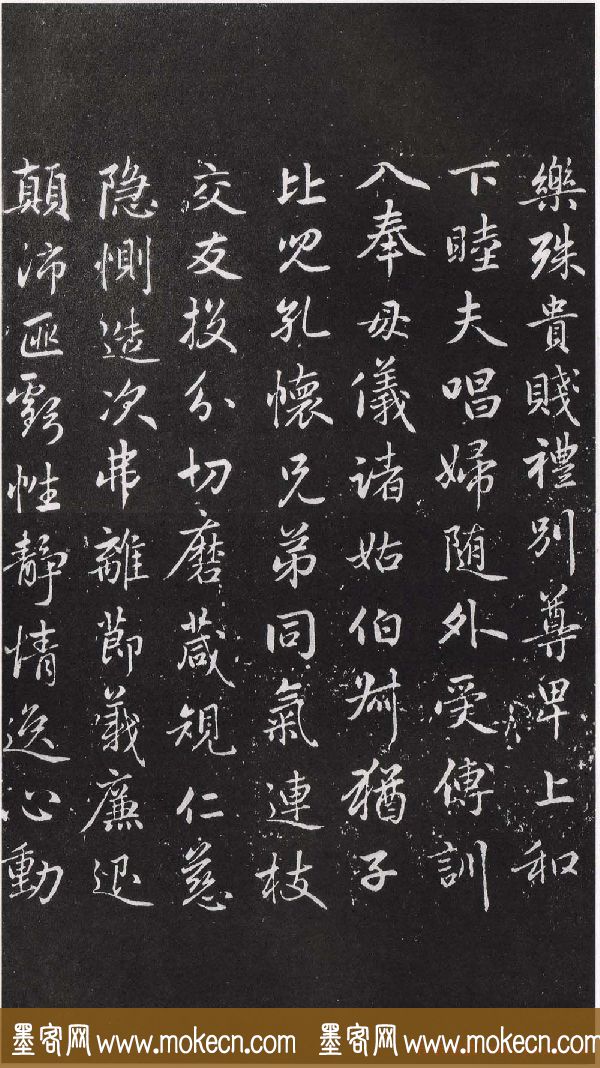 樂殊貴賤禮別尊卑上和
下睦夫唱婦随外受傅訓
入奉母儀诸姑伯叔猶子
比兒孔懷兄弟同氣連枝
交友投分切磨葴規仁慈
隐惻造次弗離節義廉退
顛沛匪虧性靜情逸心動
墨客网 www.mokecn.com 墨客网 www.mokecn.com